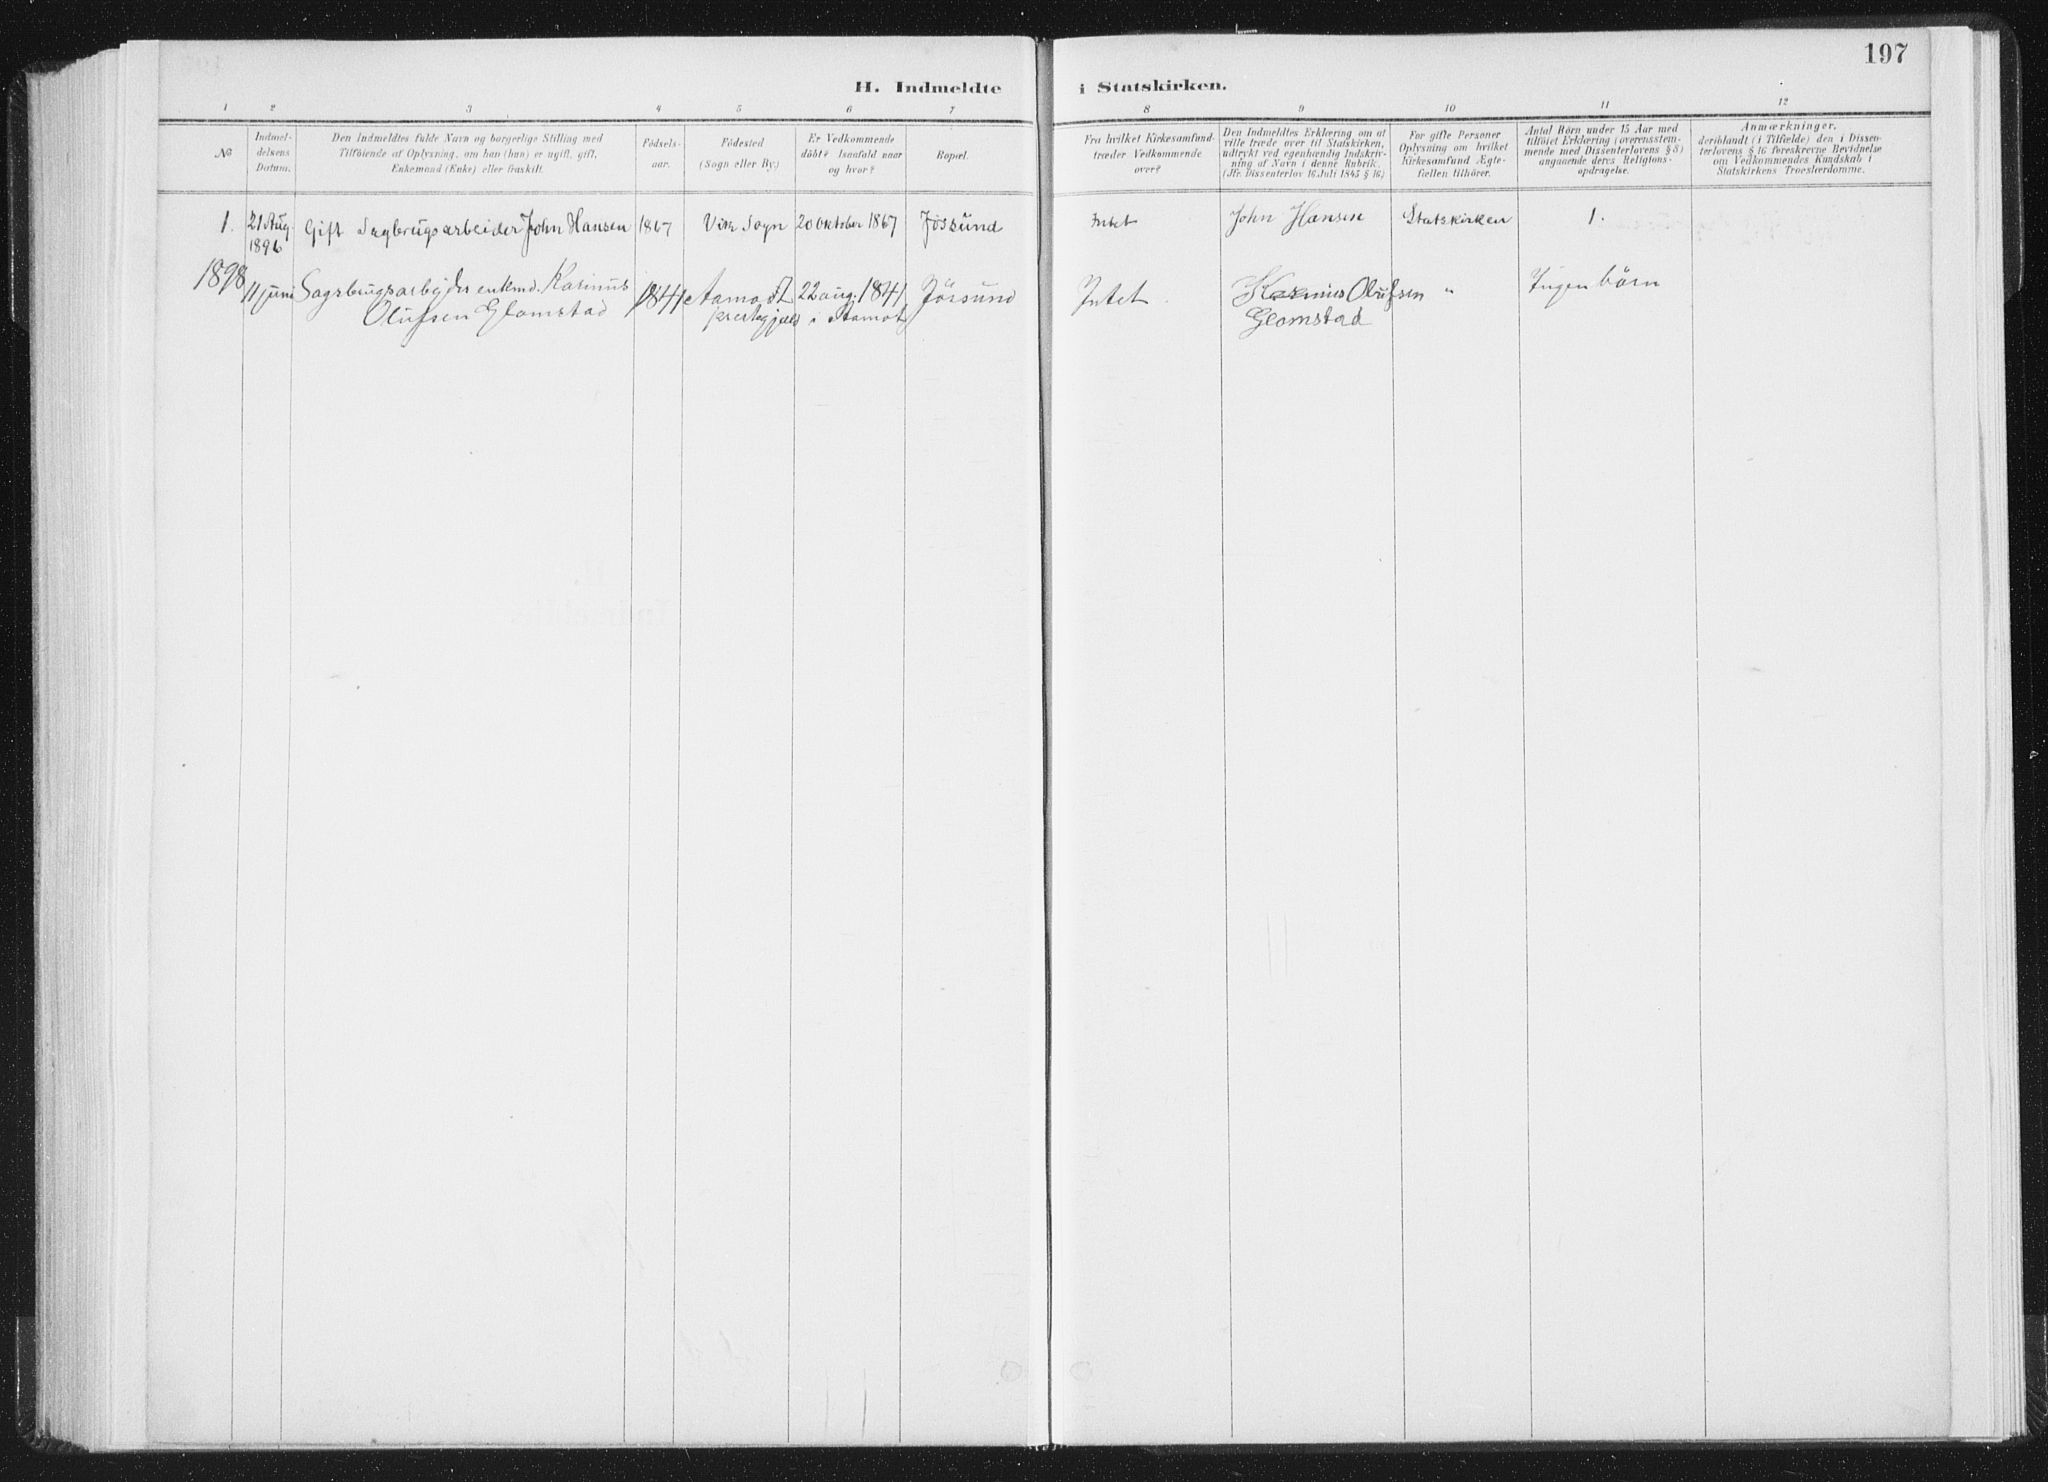 197
H. Indmeldte i Statskirken.
1 2 3 4 5 6 7 8 9 10 11 12
№
Indmel-
delsens
Datum.
Den Indmeldtes fulde Navn og borgerlige Stilling med
Tilföiende af Oplysning, om han (hun) er ugift, gift,
Enkemand (Enke) eller fraskilt.
Födsels-
aar.
Födested
(Sogn eller By.)
Er Vedkommende
döbt? Isaafald naar
og hvor?
Bopæl.
Fra hvilket Kirkesamfund
træder Vedkommende
over?
Den Indmeldtes Erklæring om at
ville træde over til Statskirken,
udtrykt ved egenhændig Indskriv-
ning af Navn i denne Rubrik.
(Jfr. Dissenterlov 16 Juli 1845 § 16)
For gifte Personer
Oplysning om hvilket
Kirkesamfund Ægte-
fællen tilhörer.
Antal Börn under 15 Aar med
tilföiet Erklæring (overensstem-
mende med Dissenterlovens § 8)
angaaende deres Religions-
opdragelse.
Anmærkninger,
deriblandt (i Tilfælde) den i Dissen-
terlovens § 16 foreskrevne Bevidnelse
om Vedkommendes Kundskab i
Statskirkens Troeslærdomme.
1. 21 Aug. Gift Sagbrugsarbeider John Hansen 1867 Vik Sogn 20 Oktober 1867 Jøssund Intet John Hansen Statskirken 1.
1896
1898
11 juni Sagsbrugsarbejder enkmd. Karinus 1841 Aamodt 22 aug. 1841 Jössund Intet. Karinus Olufsen " Ingen börn
Olufsen Glomstad prestegjæld i Aamot Glomstad